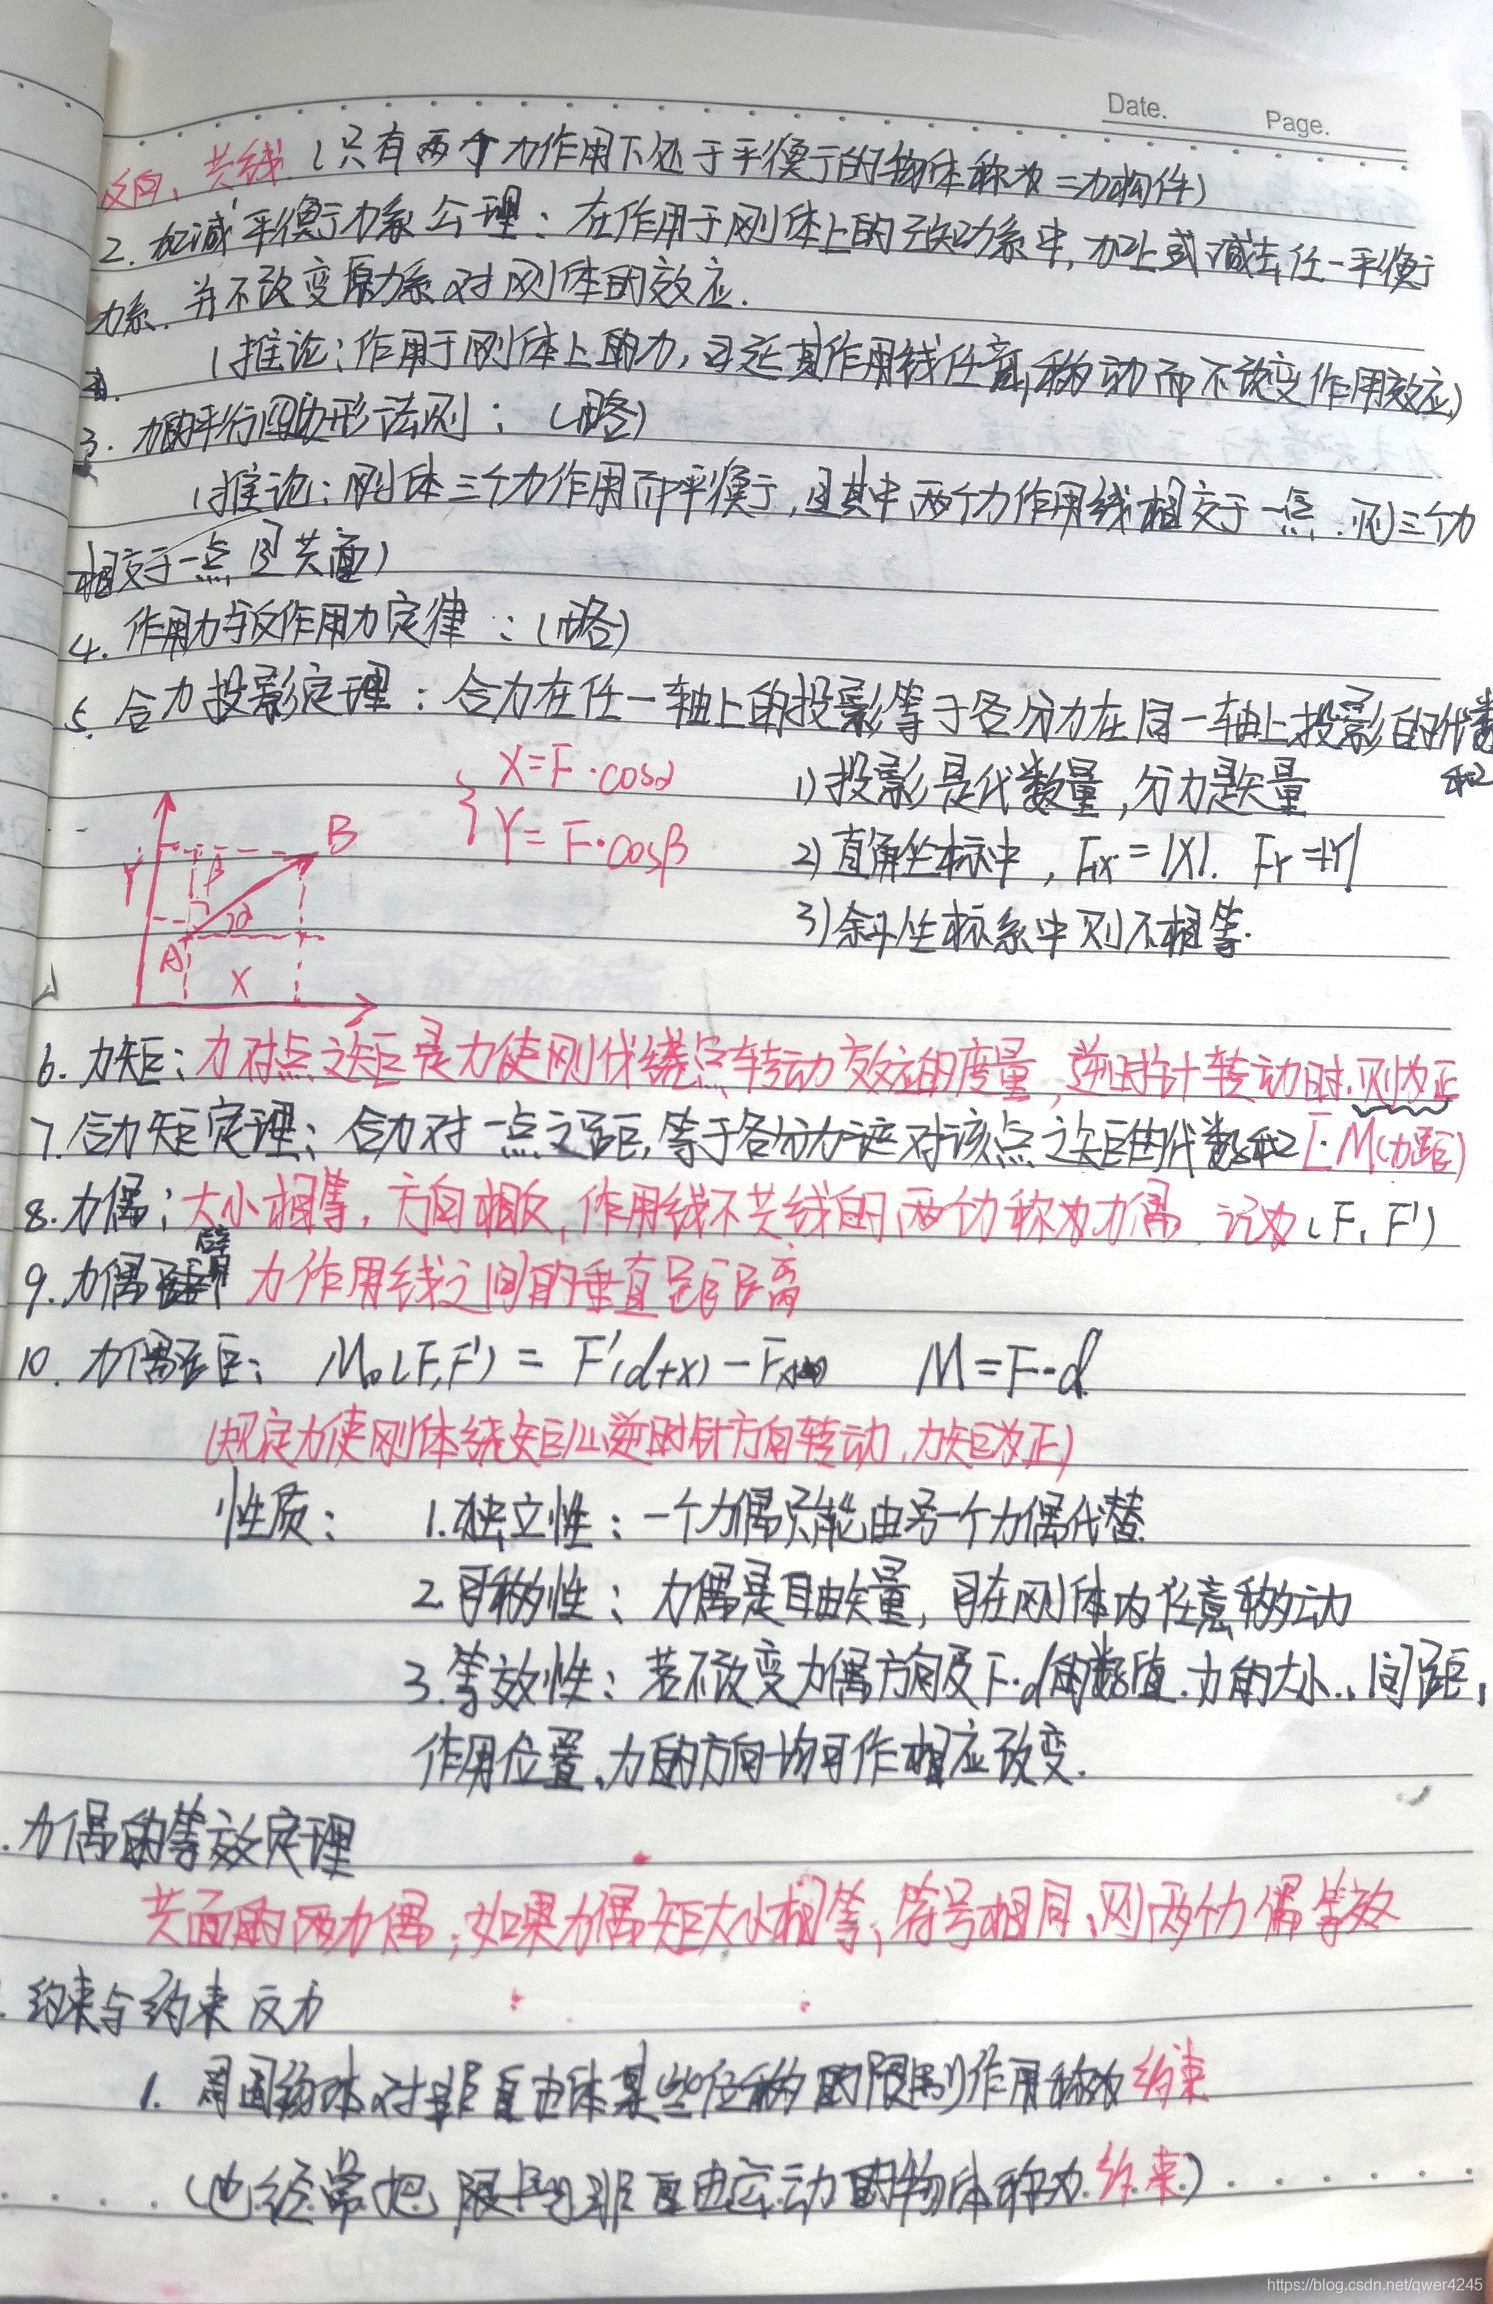 Date. Page.
反向、共线 (只有两个力作用下处于平衡的物体称为二力构件)
2. 加减平衡力系公理：在作用于刚体上的已知力系中，加上或减去任一平衡
力系. 并不改变原力系对刚体的效应.
(推论：作用于刚体上的力，可延其作用线任意移动而不改变作用效应)
3. 力的平行四边形法则：(略)
(推论：刚体三个力作用而平衡，且其中两个力作用线相交于一点.则三个力
相交于一点且共面)
4. 作用力与反作用力定律：(略)
5. 合力投影定理：合力在任一轴上的投影等于各分力在同一轴上投影的代数
和
X=F·cosα
1) 投影是代数量，分力是矢量
Y=F·cosβ
2) 直角坐标中，Fx=|X|. FY=|Y|
3) 斜坐标系中则不相等.
Y β B
A α
X
6. 力矩：力对点之矩是力使刚体绕点转动效应的度量，逆时针转动时.则为正
7. 合力矩定理：合力对一点之距，等于各分力对该点之矩的代数和 M(力距)
8. 力偶：大小相等，方向相反，作用线不共线的两个力称为力偶 记为(F, F')
9. 力偶臂 力作用线之间的垂直距离
10. 力偶矩： Mo(F,F') = F'(d+x) - Fx M=F·d
(规定力使刚体绕矩心逆时针方向转动，力矩为正)
性质： 1. 独立性：一个力偶只能由另一个力偶代替
2. 可移性：力偶是自由矢量，可在刚体内任意移动
3. 等效性：若不改变力偶方向及F·d的数值.力的大小、间距，
作用位置、力的方向均可作相应改变.
. 力偶的等效定理
共面的两力偶，如果力偶矩大小相等，符号相同，则两个力偶等效
. 约束与约束反力
1. 周围物体对非自由体某些位移的限制作用称为约束
(也经常把限制非自由运动的物体称为约束)
https://blog.csdn.net/qwer4245